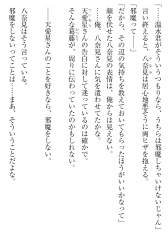 「……温水君がそうなら、あたしらは邪魔しちゃいけないじゃん」
言い終えると、八奈見は居心地悪そうに両ヒザを抱える。
「邪魔って――」
「だから、その辺の気持ちを教えておいてもらったほうがいいかなって」
顔を伏せた八奈見の表情は、俺からは分からない。
……俺、八奈見さんに気を遣わせてたかな。
天愛星さんの告白に対して迷っているのは確かで、
そんな葛藤が、周りに伝わっていたのかもしれない。
――天愛星さんのことを好きなら、邪魔をしない。
八奈見はそう言っている。
邪魔をしないってことは……まあ、そういうことだよな。